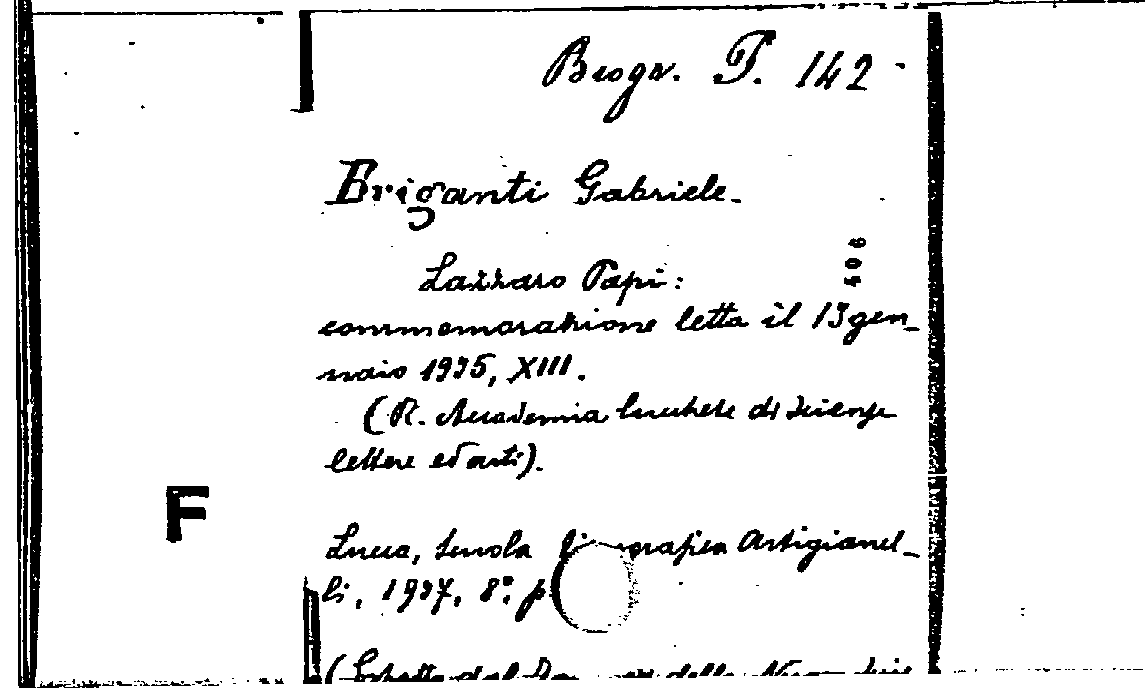 Biogr. P. 142
Briganti Gabriele.
406
Lazzaro Papi:
commemorazione letta il 13 gen_
naio 1935, XIII.
(R. Accademia lucchese di scienze
lettere ed arti).
F
Lucca, Scuola Artigianel_
li, 1937, 8°. p.
(Estratto dal della